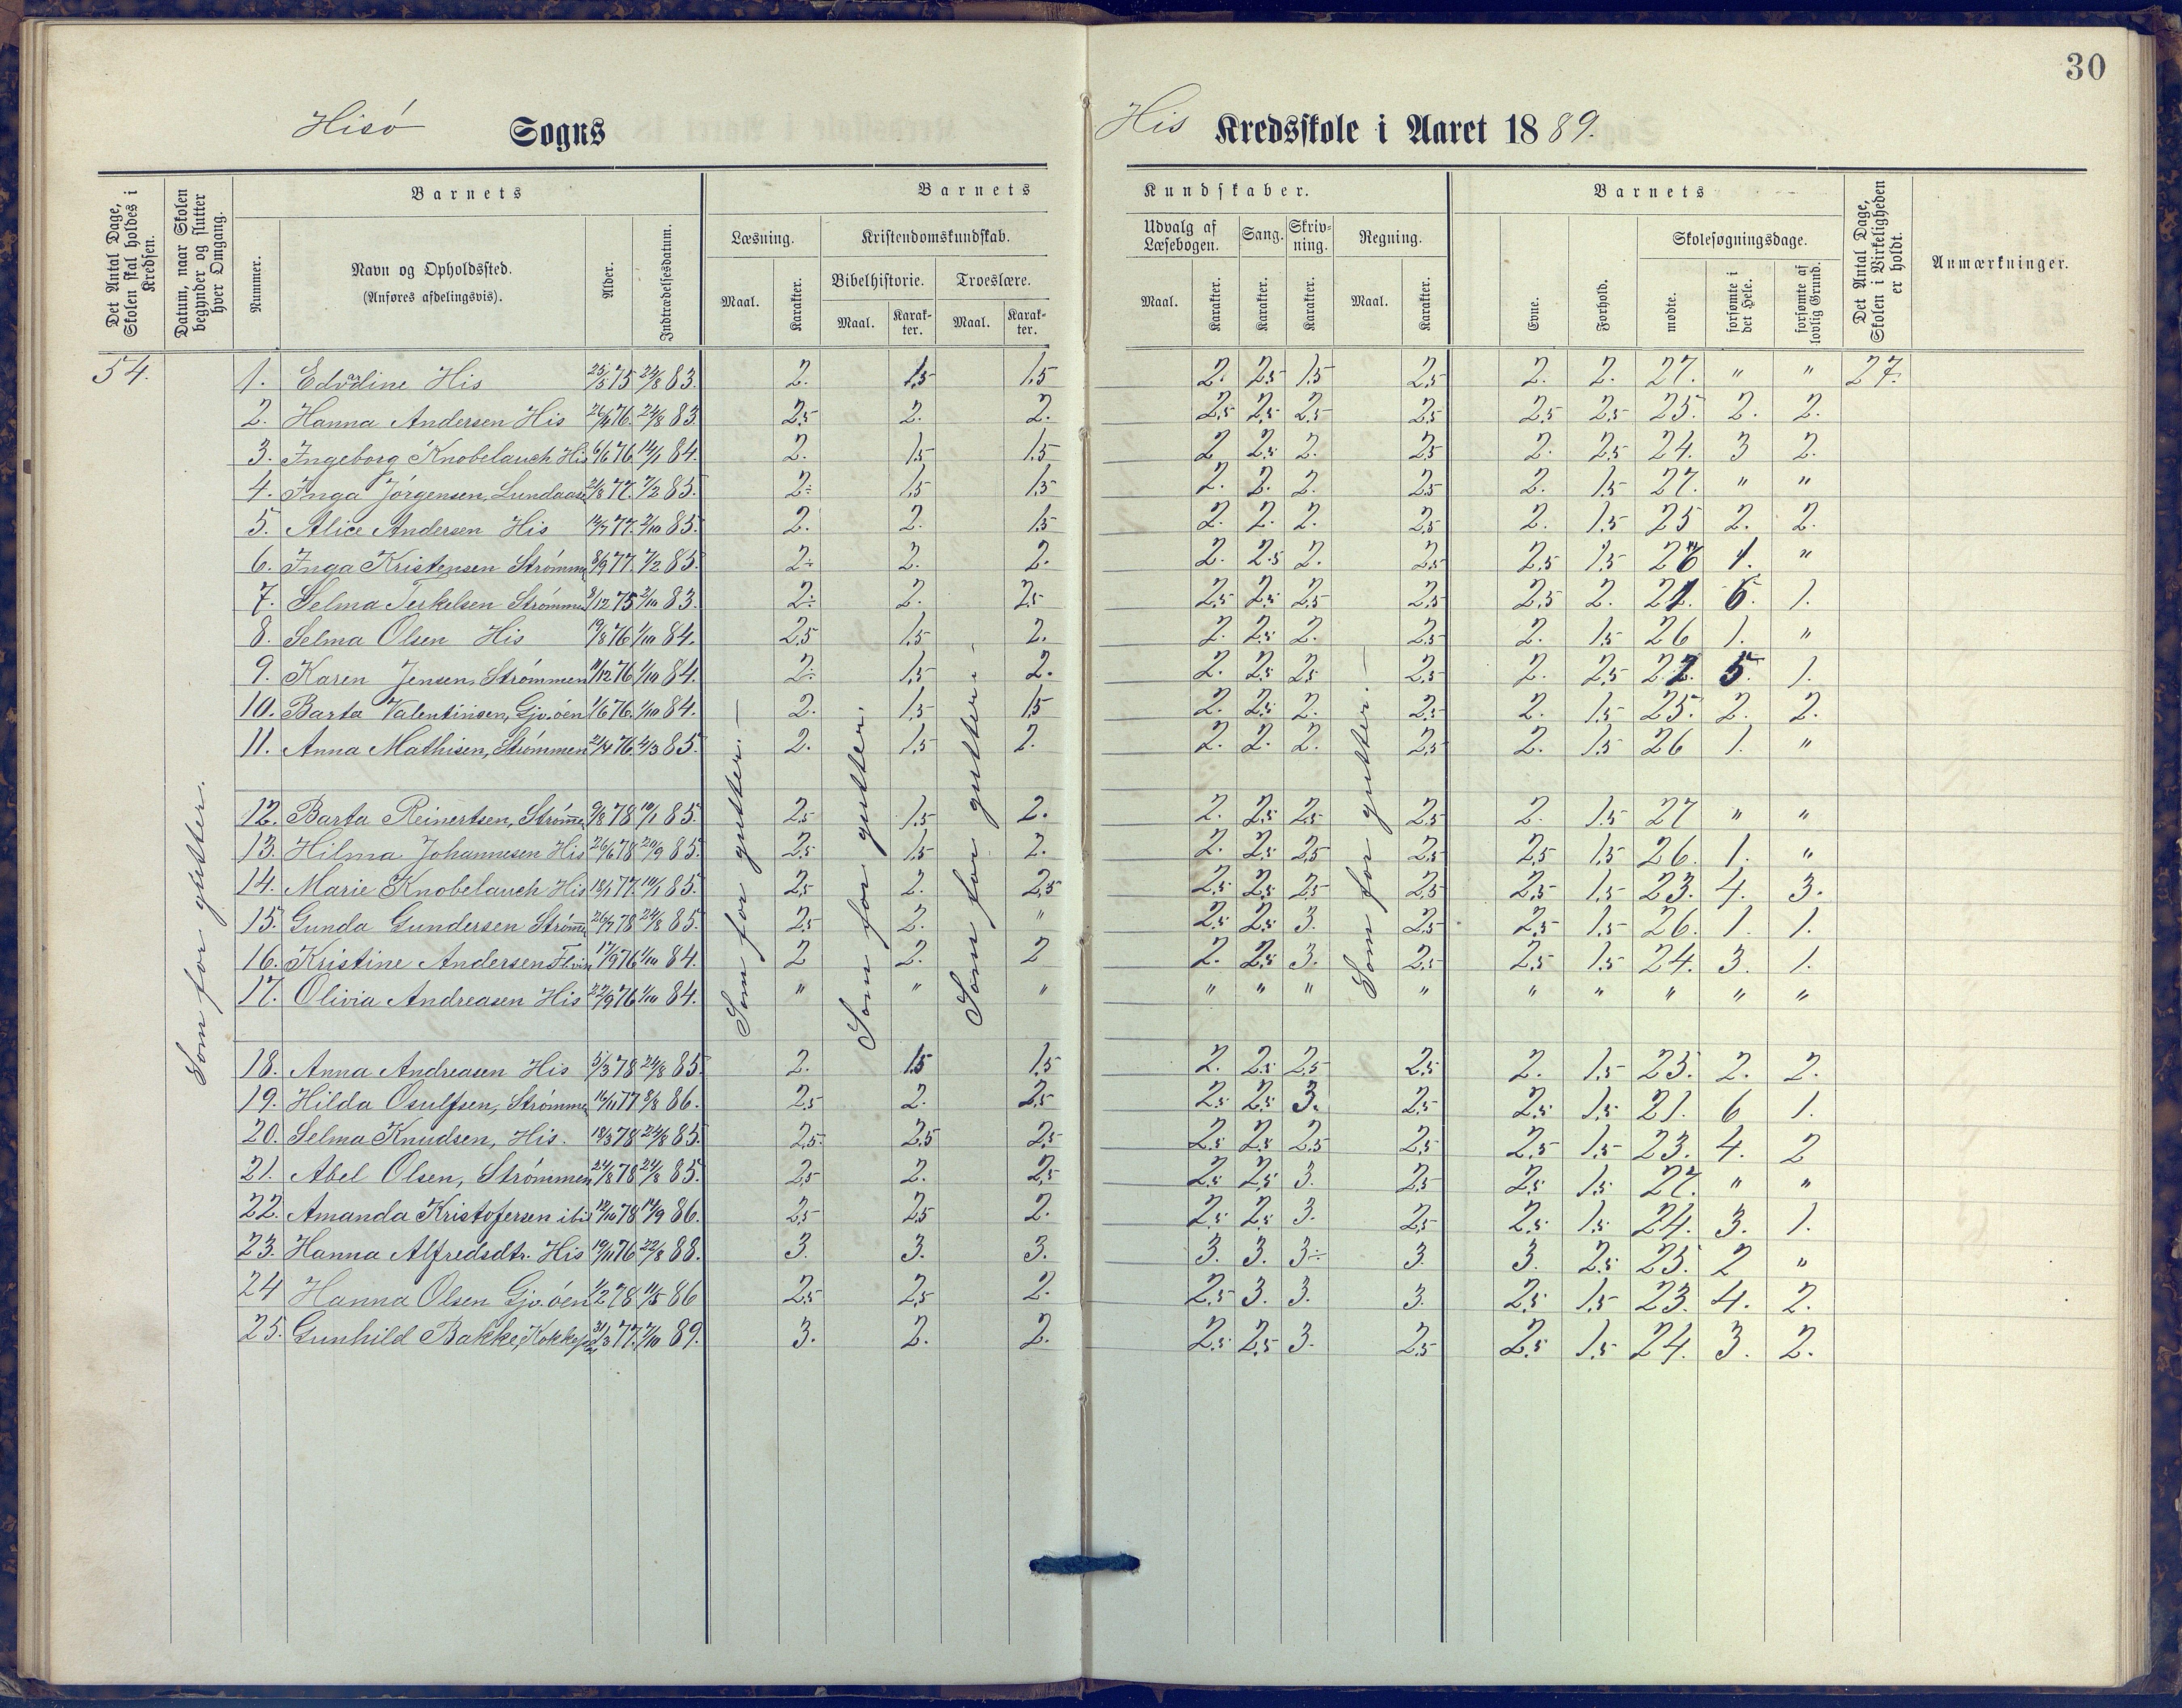 30
Hisó Sogns His Kredsskole i Aaret 1889.
Det Antal Dage, Skolen skal holdes i Kredsen.
Datum, naar Skolen begynder og slutter hver Omgang.
Barnets
Nummer.
Navn og Opholdssted.
(Anføres afdelingsvis).
Alder.
Indtrædelsesdatum.
Barnets Kundskaber.
Læsning.
Maal. Karakter.
Kristendomskundskab.
Bibelhistorie.
Maal. Karakter.
Troeslære.
Maal. Karakter.
Udvalg af Læsebogen.
Maal. Karakter.
Sang.
Karakter.
Skrivning.
Karakter.
Regning.
Maal. Karakter.
Barnets
Evne.
Forhold.
Skolesøgningsdage.
mødte.
forsømte i det Hele.
forsømte af lovlig Grund.
Det Antal Dage, Skolen i Virkeligheden er holdt.
Anmærkninger.
54.
Som for gutter.
Som for gutter.
Som for gutter.
Som for gutter.
Som for gutter.
1. Edvardine His 25/5 75 24/8 83. 2. 1,5 1,5 2. 2,5 1,5 2,5 2. 2. 27. " " 27.
2. Hanna Andersen His 76. 24/8 83. 2,5 2. 2. 2,5 2,5 2,5 2,5 2,5 2,5 25. 2. 2.
3. Ingeborg Knobelauch His 76 14/1 84. 2. 1,5 1,5 2 2,5 2. 2,5 2. 2,5 24. 3 2.
4. Inga Jørgensen, Lundaasen 77. 7/2 85. 2÷ 1,5 1,5 2. 2. 2. 2,5 2. 1,5 27. " "
5. Alice Andersen His 77. 2/10 85. 2. 2. 1,5 2. 2. 2. 2,5 2. 1,5 25 2. 2.
6. Inga Kristensen Strømmen 8/9 77. 7/2 85. 2÷ 2. 2. 2. 2,5 2. 2,5 2,5 1,5 26 1. "
7. Selma Terkelsen Strømmen 75 2/10 83. 2÷ 2. 2,5 2,5 2,5 2,5 2,5 2,5 2. 21. 6. 1.
8. Selma Olsen His 19/8 76 1/10 84. 2,5 1,5 2. 2. 2,5 2. 2,5 2. 1,5 26 1. "
9. Karen Jensen, Strømmen 11/12 76 1/10 84. 2÷ 1,5 2. 2. 2,5 2,5 2,5 2. 2,5 22. 5. 1.
10. Barta Valentinsen, Gjv.øen 1/6 76. 1/10 84. 2. 1,5 1,5 2. 2,5 2. 2,5 2. 1,5 25. 2. 2.
11. Anna Mathisen, Strømmen 21/4 76. 2/3 85. 2. 1,5 2. 2. 2. 2. 2,5 2. 1,5 26 1. "
12. Barta Reinertsen, Strømmen 9/8 78 85. 2,5 1,5 2. 2. 2,5 2,5 2,5 2. 1,5 27 " "
13. Hilma Johannesen His 26/6 78 29/9 85. 2,5 1,5 2. 2. 2,5 2,5 2,5 2,5 1,5 26. 1. "
14. Marie Knobelauch His 18/1 77. 85. 2,5 2. 2,5 2,5 2,5 2,5 2,5 2,5 1,5 23. 4. 3.
15. Gunda Gundersen Strømm 26/7 78 24/8 85. 2,5 2. " 2,5 2,5 3. 2,5 2,5 1,5 26. 1. 1.
16. Kristine Andersen 17/9 76 1/10 84. 2 2. 2 2. 2,5 3. 2,5 2,5 1,5 24. 3. 1.
17. Olivia Andreasen His 22/9 76 1/10 84. " " " " " " " " " " " "
18. Anna Andreasen His 5/3 78 24/8 85. 2. 1,5 1,5 2. 2,5 2,5 2,5 2. 1,5 25. 2. 2.
19. Hilda Osulfsen, Strømmen 16/11 77 86. 2,5 2. 2,5 2,5 2,5 3. 2,5 2,5 1,5 21. 6 1.
20. Selma Knudsen, His. 18/3 78 24/8 85. 2,5 2,5 2,5 2,5 2,5 2,5 2,5 2,5 1,5 23. 4. 2
21. Abel Olsen, Strømmen 24/8 78 24/8 85. 2,5 2. 2,5 2,5 2,5 3. 2,5 2,5 1,5 27. " "
22. Amanda Kristofersen ibid 12/10 78 86. 2,5 2,5 2. 2,5 2,5 3. 2,5 2,5 1,5 24. 3. 1.
23. Hanna Alfredsdtr. His 19/11 76 22/8 88. 3. 3. 3. 3. 3. 3÷ 3. 3. 2,5 25. 2 "
24 Hanna Olsen Gjv.øen 1/2 78 11/5 86 2,5 2,5 2. 2,5 3. 3. 3. 2,5 1,5 23. 4. 2.
25. Gunhild Bakke, 31/3 77. 7/10 89. 3. 2. 2. 2,5 2,5 3. 2,5 2,5 1,5 24. 3. 2.